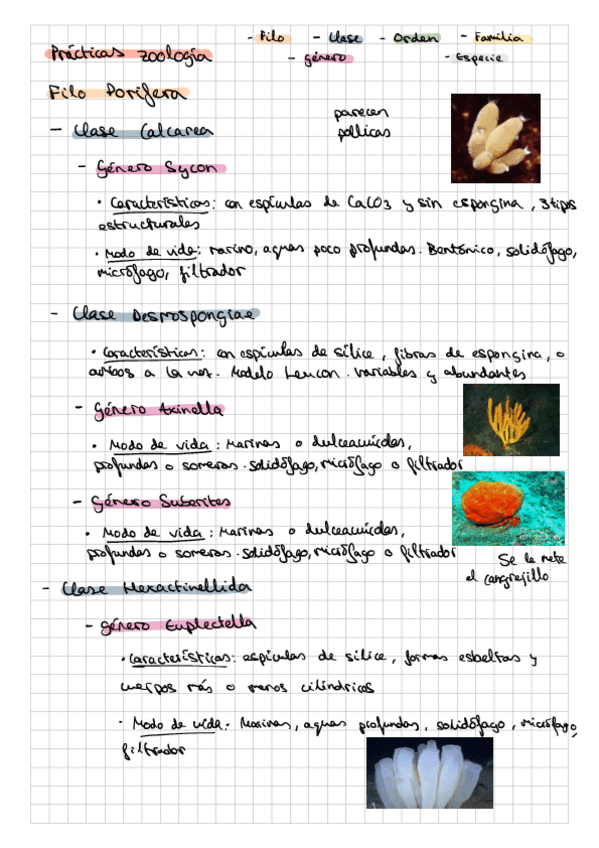 - Filo - Clase - Orden - Familia
Prácticas zoología
- género - Especie
Filo Porifera
parecen
pollicas
- Clase Calcarea
- Género Sycon
• Características: con espículas de CaCO3 y sin espongina, 3 tipos
estructurales
• Modo de vida: marino, aguas poco profundas. Bentónico, solidófago,
micrófago, filtrador
- Clase Desmospongiae
• Características: con espículas de sílice, fibras de espongina, o
ambos a la vez. Modelo Leucon. Variables y abundantes
- Género Axinella
• Modo de vida: Marinas o dulceacuícolas,
profundas o someras. solidófago, micrófago o filtrador
- Género Suberites
• Modo de vida: Marinas o dulceacuícolas,
profundas o someras. solidófago, micrófago o filtrador
Se le mete
el cangrejillo
- Clase Hexactinellida
- género Euplectella
• Características: espículas de sílice, formas esbeltas y
cuerpos más o menos cilíndricos
• Modo de vida: Marinas, aguas profundas, solidófago, micrófago,
filtrador